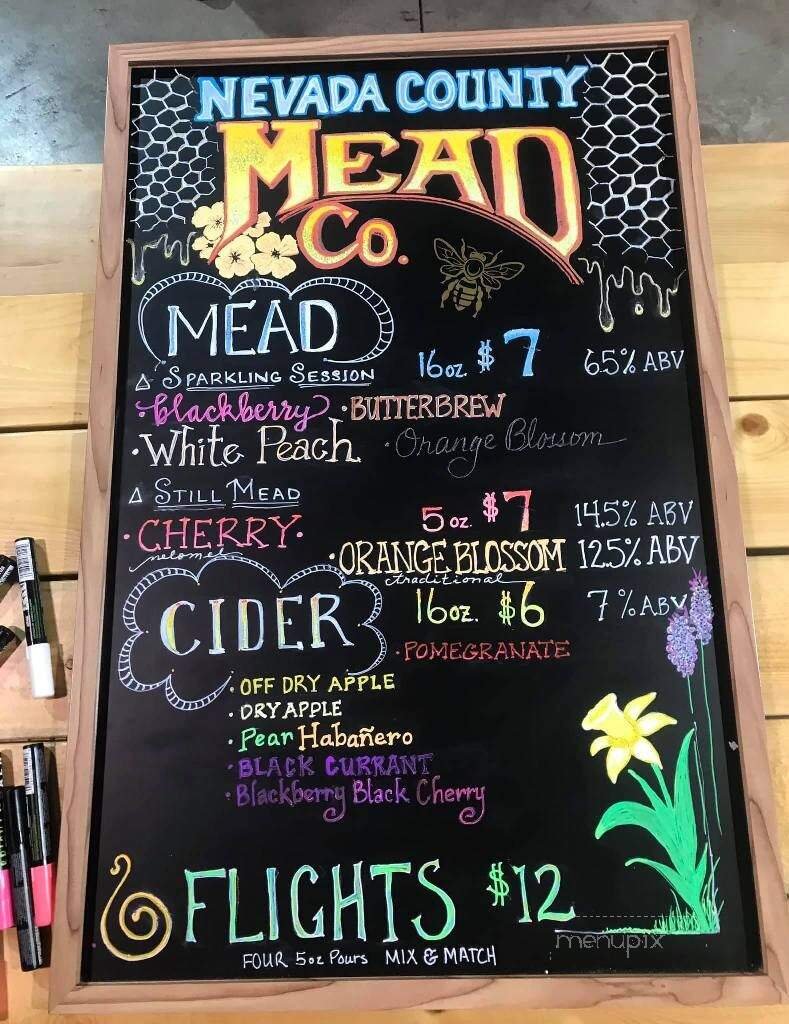 NEVADA COUNTY
MEAD
Co.
MEAD
16oz. $7 6.5% ABV
Δ SPARKLING SESSION
· blackberry · BUTTERBREW
· White Peach · Orange Blossom
Δ STILL MEAD
5 oz. $7 14.5% ABV
· CHERRY ·
melomel
· ORANGE BLOSSOM 12.5% ABV
traditional
CIDER
16oz. $6 7% ABV
· POMEGRANATE
· OFF DRY APPLE
· DRY APPLE
· Pear Habañero
· BLACK CURRANT
· Blackberry Black Cherry
FLIGHTS $12
FOUR 5oz Pours MIX & MATCH
menupix